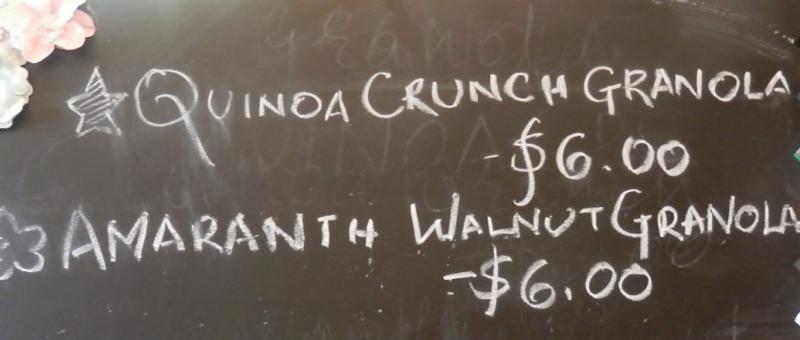 QUINOA CRUNCH GRANOLA
-$6.00
AMARANTH WALNUT GRANOLA
-$6.00